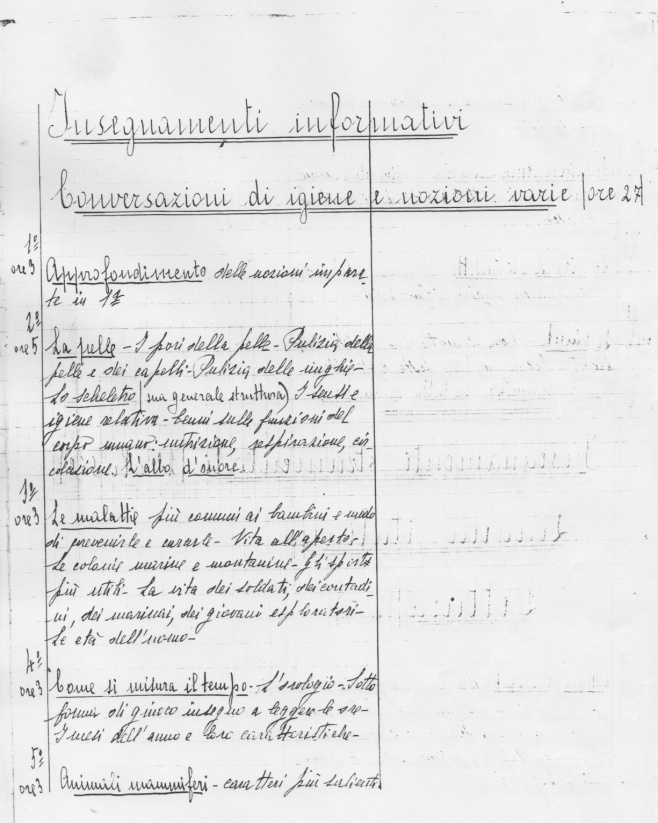 Insegnamenti informativi
Conversazioni di igiene e nozioni varie (ore 27)
1ª
ore 3
Approfondimento delle nozioni impar-
tite in 1ª
2ª
ore 5
La pelle - I pori della pelle - Pulizia della
pelle e dei capelli - Pulizia delle unghie -
Lo scheletro (sua generale struttura) I sensi e
igiene relativa - Cenni sulle funzioni del
corpo umano: nutrizione, respirazione, cir-
colazione. L'albo d'onore.
3ª
ore 3
Le malattie più comuni ai bambini e modo
di prevenirle e curarle - Vita all'aperto -
Le colonie marine e montanine - Gli sports
più utili - La vita dei soldati, dei contadi-
ni, dei marinai, dei giovani esploratori -
Le età dell'uomo -
4ª
ore 3
Come si misura il tempo - L'orologio - Sotto
forma di giuoco insegno a leggere le ore -
I mesi dell'anno e loro caratteristiche -
5ª
ore 3
Animali mammiferi - caratteri più salienti.